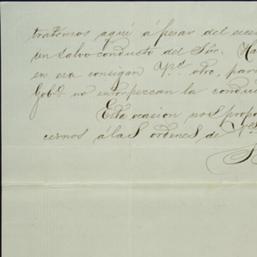 tratarnos aqui á pesar del
un salvo conducto del Sor.
en esa consigan Vd. otro, para
Gobo. no entorpezcan la condu
Esta ocasion nos propo
cernos á las ordenes, de V